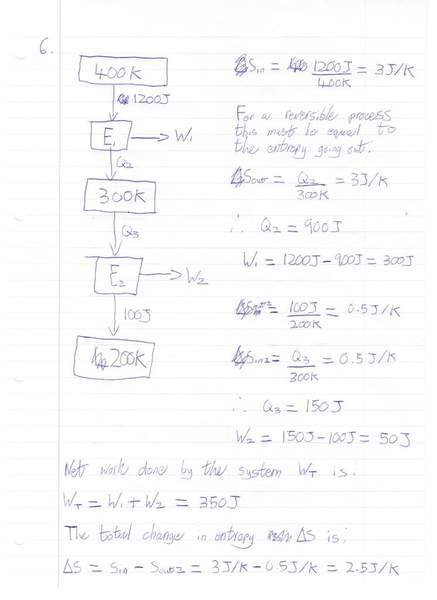 6.
400K
1200J
E₁ → W₁
Q₂
300K
Q₃
E₂ → W₂
100J
200K
Sin = 1200J/400K = 3J/K
For a reversible process
this must be equal to
the entropy going out.
Sout = Q₂/300K = 3J/K
∴ Q₂ = 900J
W₁ = 1200J - 900J = 300J
Sout2 = 100J/200K = 0.5J/K
Sin2 = Q₃/300K = 0.5J/K
∴ Q₃ = 150J
W₂ = 150J - 100J = 50J
Net work done by the system W_T is:
W_T = W₁ + W₂ = 350J
The total change in entropy ΔS is:
ΔS = Sin - Sout2 = 3J/K - 0.5J/K = 2.5J/K